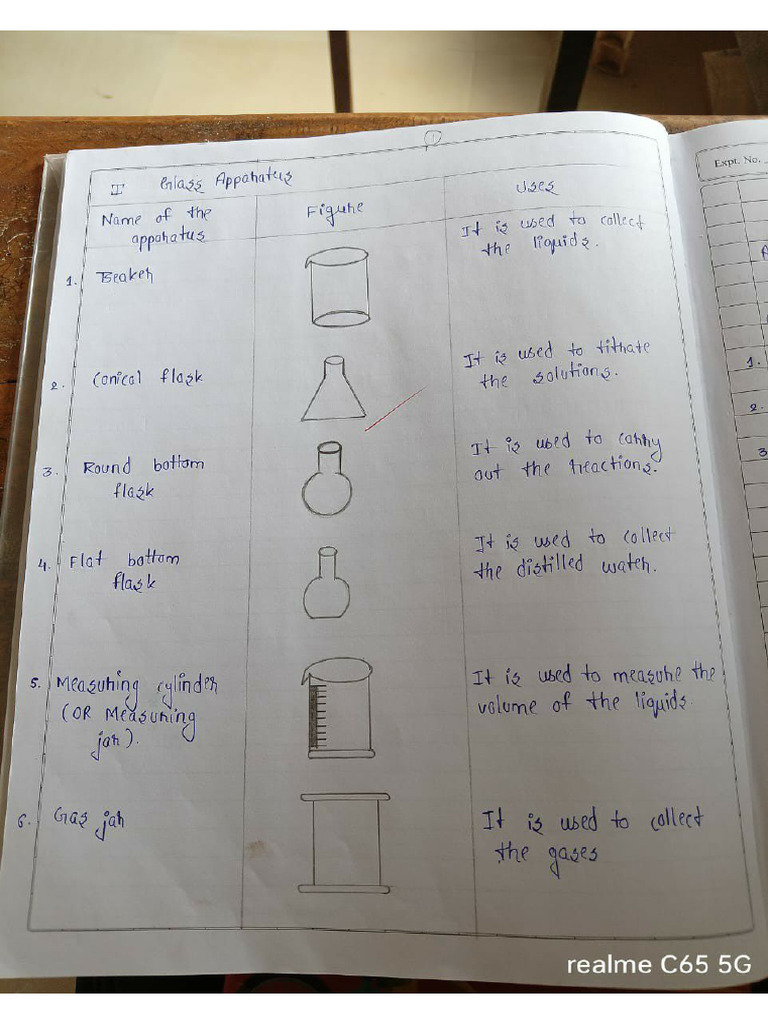 1
I Glass Apparatus
Name of the
apparatus
Figure
Uses
1. Beaker
It is used to collect
the liquids.
2. Conical flask
It is used to titrate
the solutions.
3. Round bottom
flask
It is used to carry
out the reactions.
4. Flat bottom
flask
It is used to collect
the distilled water.
5. Measuring cylinder
(OR Measuring
jar).
It is used to measure the
volume of the liquids.
6. Gas jar
It is used to collect
the gases
Expt. No.
1.
2.
3
realme C65 5G